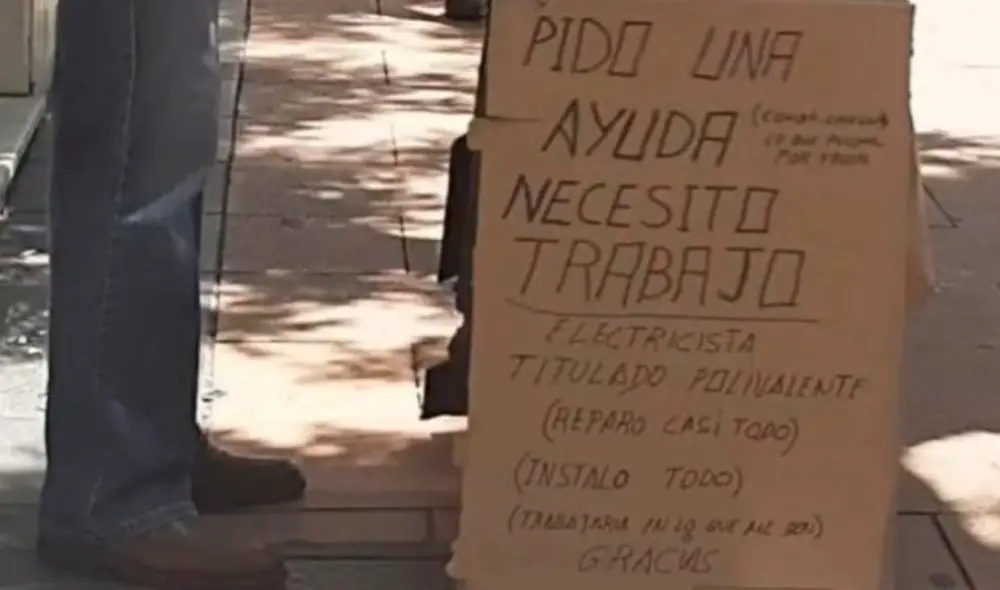 PIDO UNA
AYUDA
LO QUE PUEDAN
POR FAVOR
NECESITO
TRABAJO
ELECTRICISTA
TITULADO POLIVALENTE
(REPARO CASi TODO)
(INSTALO TODO)
(TRABAJARIA EN LO QUE ME DEN)
GRACIAS